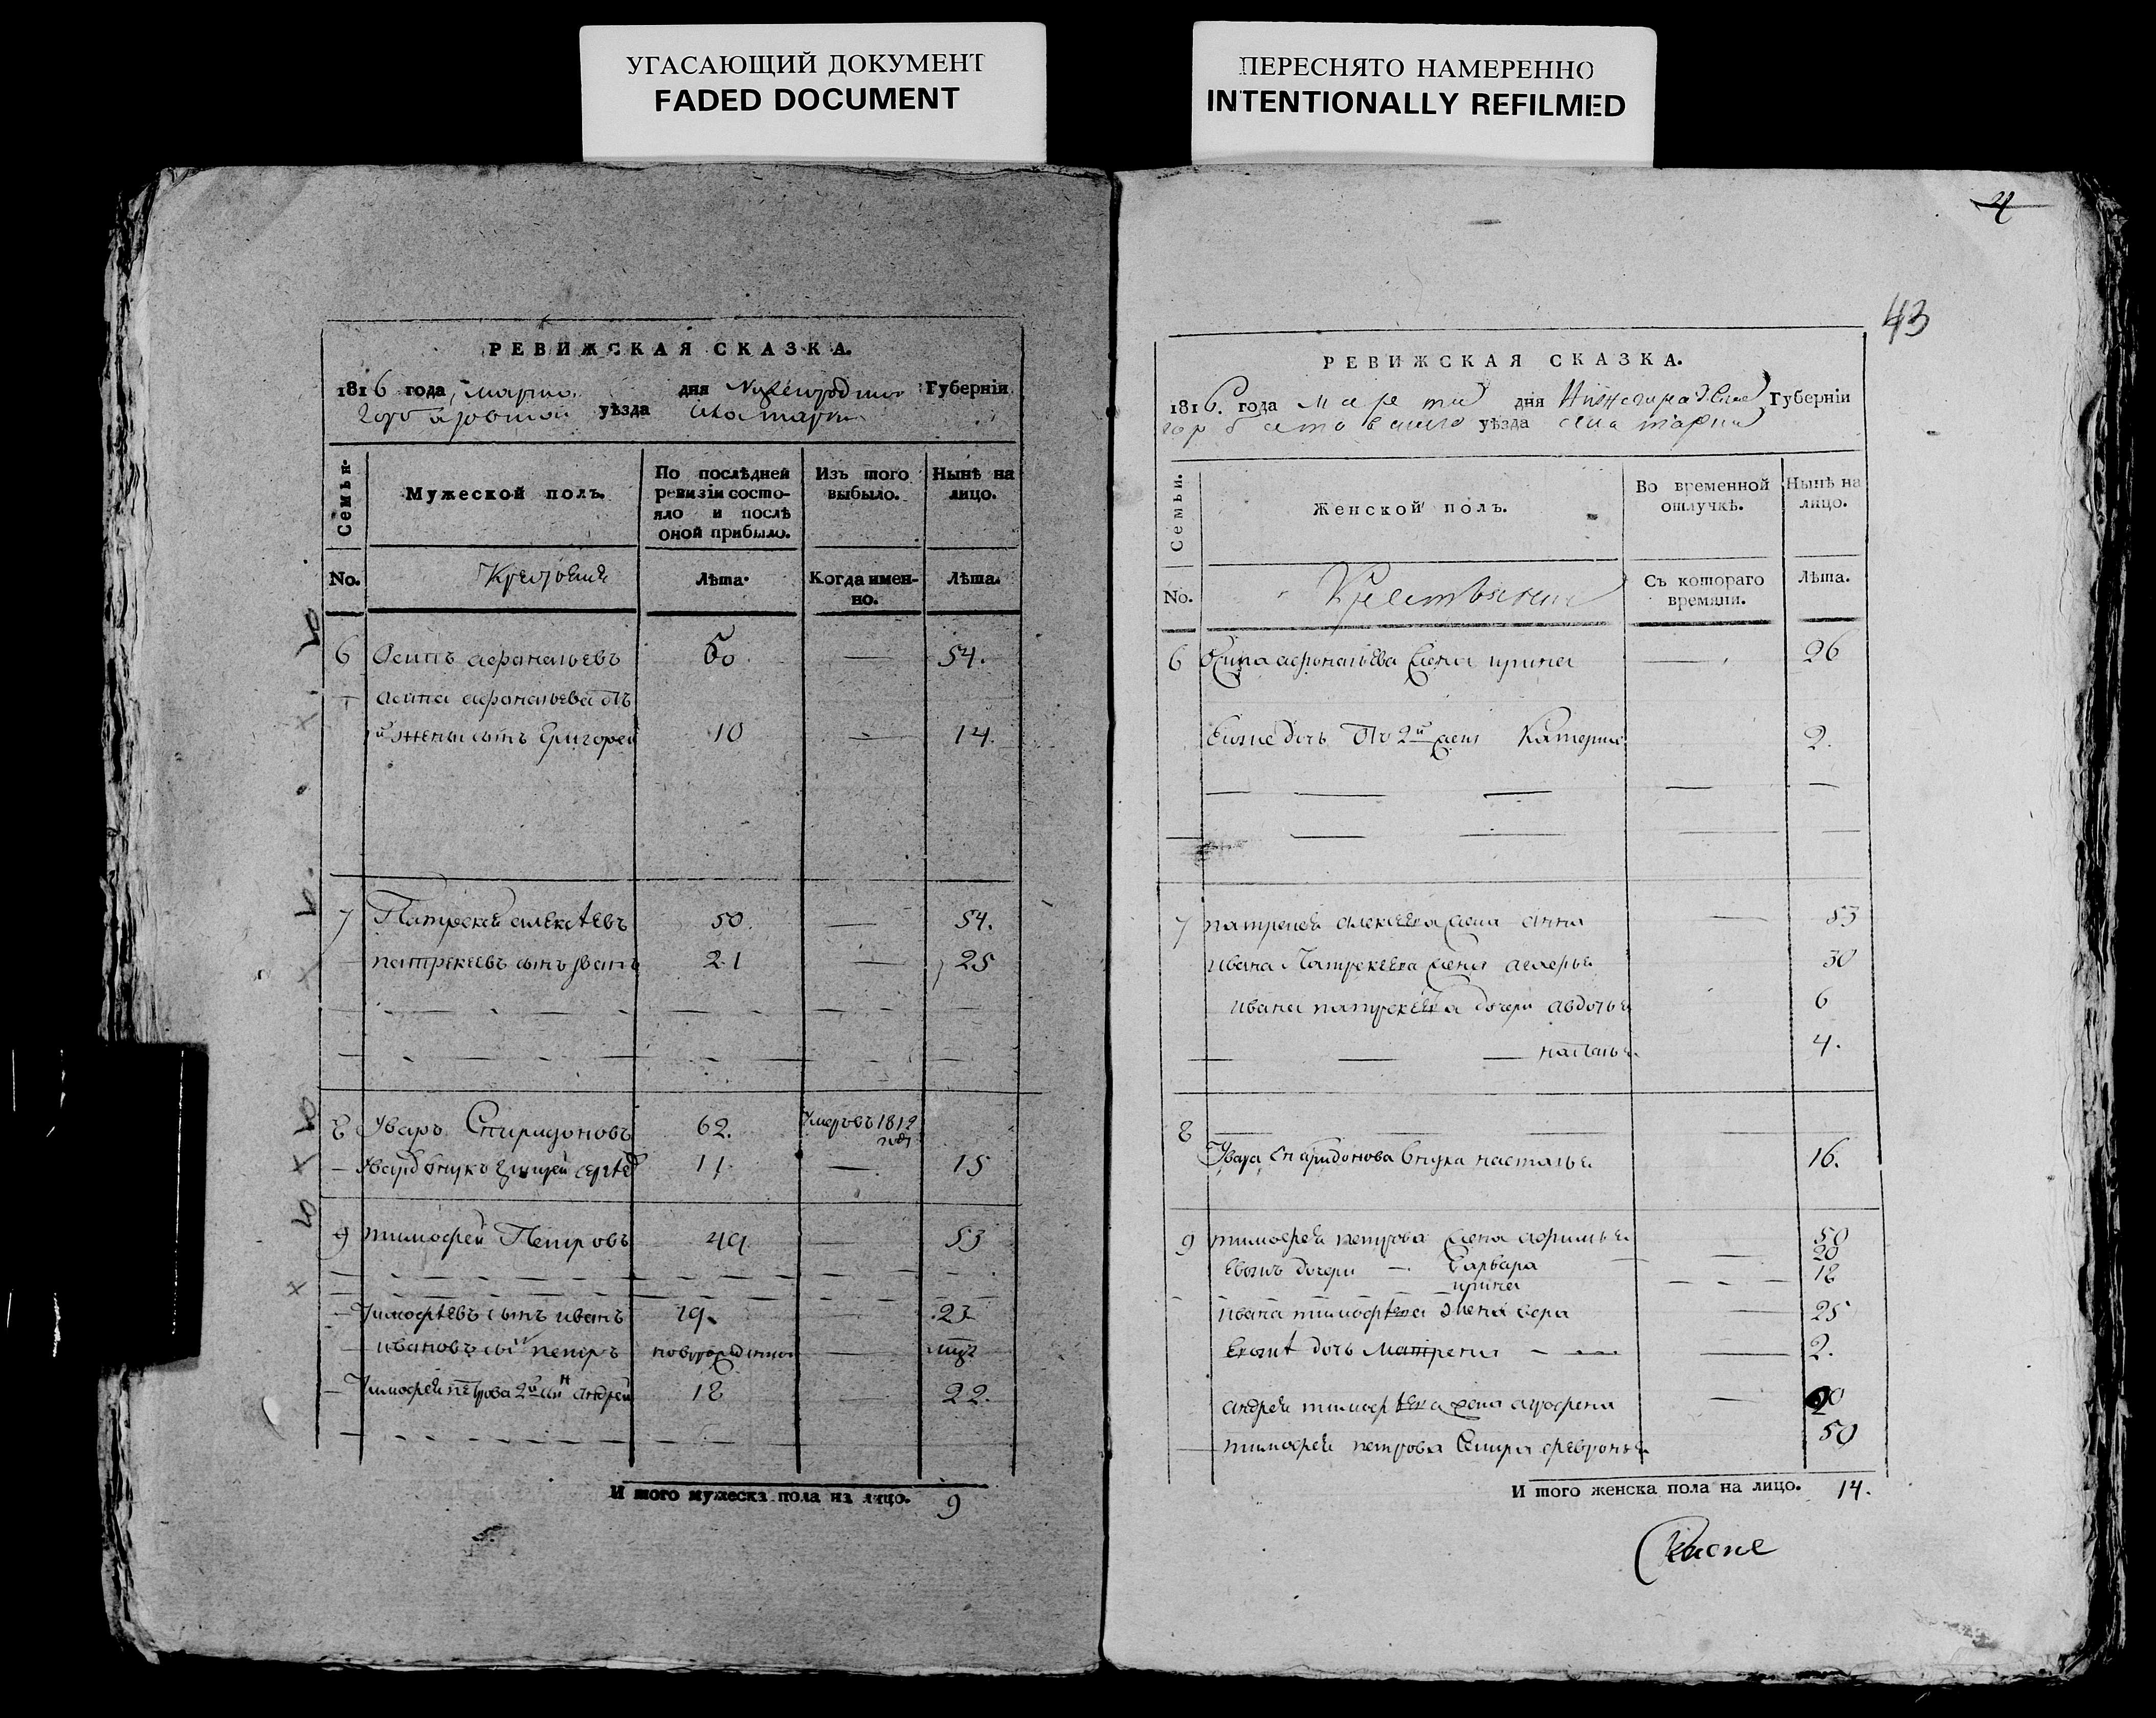 УГАСАЮЩИЙ ДОКУМЕНТ
FADED DOCUMENT
ПЕРЕСНЯТО НАМЕРЕННО
INTENTIONALLY REFILMED
РЕВИЖСКАЯ СКАЗКА.
1816 года марта дня Губерніи
уѣзда
Семьи.
Мужеской полъ.
По послѣдней ревизіи состояло и послѣ оной прибыло.
Изъ того выбыло.
Нынѣ на лицо.
No.
Лѣта.
Когда именно.
Лѣта.
6 Осипъ афонасьевъ 50. — 54.
осипа афонасьева отъ
й жены сынъ Григорей 10 — 14.
7 Патрекей алексѣевъ 50. — 54.
патрекеевъ сынъ иванъ 21 — 25
8 Уваръ Спиридоновъ 62. Умеръ въ 1812 годъ
— внукъ сергѣевъ 11 — 15
9 тимофей Петровъ 49. — 53
— Тимофѣевъ сынъ иванъ 19. .23
— ивановъ сынъ петръ новорожденной —
— Тимофея петрова 2й сынъ андрей 18 — 22.
И того мужеска пола на лицо. 9
4
43
РЕВИЖСКАЯ СКАЗКА.
1816. года марта дня Губерніи
горбатовскаго уѣзда села
Семьи.
Женской полъ.
Во временной отлучкѣ.
Нынѣ на лицо.
No.
Съ котораго времяни.
Лѣта.
6 Осипа афонасьева жена ирина — 26
Евоже дочь отъ 2й жены Катерина 2.
7 патрекея алексеева жена анна — 53
ивана Патрекеева жена 30
ивана патрекеева дочери авдотья 6
— — — 4.
8 — — —
Увара Спиридонова внука настасья 16.
9 тимофея петрова жена афимья 50
Евожъ дочери — варвара — 20
ирина — 18
ивана тимофѣева жена вера — 25
Евожѣ дочь Матрена — 2.
андрея тимофѣева жена — 20
тимофея петрова сестра февронья 50
И того женска пола на лицо. 14.